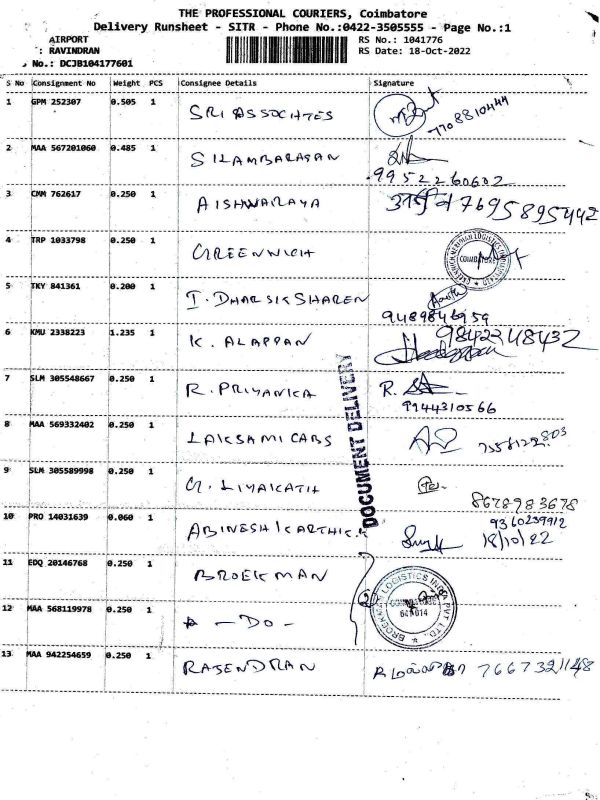 THE PROFESSIONAL COURIERS, Coimbatore
Delivery Runsheet - SITR - Phone No.:0422-3505555 - Page No.:1
AIRPORT
: RAVINDRAN
No.: DCJB104177601
RS No.: 1041776
RS Date: 18-Oct-2022
S No Consignment No Weight PCS Consignee Details Signature
1 GPM 252307 0.505 1 SRI ASSOCIATES
7708810444
2 MAA 567201060 0.485 1 SILAMBARASAN
9952260602
3 CMM 762617 0.250 1 AISHWARAYA 7695895442
4 TRP 1033798 0.250 1 GREENWICH
COIMBATORE
5 TKY 841361 0.200 1 I. DHARSIKSHAREN
9489846959
6 KMU 2338223 1.235 1 K. ALAPPAN 9842248432
7 SLM 305548667 0.250 1 R. PRIYANKA R.
9944310566
8 MAA 569332402 0.250 1 LAKSAMI CABS
9 SLM 305589998 0.250 1 G. LIYAIKATH
8678983678
10 PRO 14031639 0.060 1 ABINESH KARTHICK 9360239912
18/10/22
DOCUMENT DELIVERY
11 EDQ 20146768 0.250 1 BROEKMAN
BROEKMAN LOGISTICS INDIA PVT. LTD.
COIMBATORE
641 014
12 MAA 568119978 0.250 1 - DO -
13 MAA 942254659 0.250 1 RAJENDRAN 7667321148